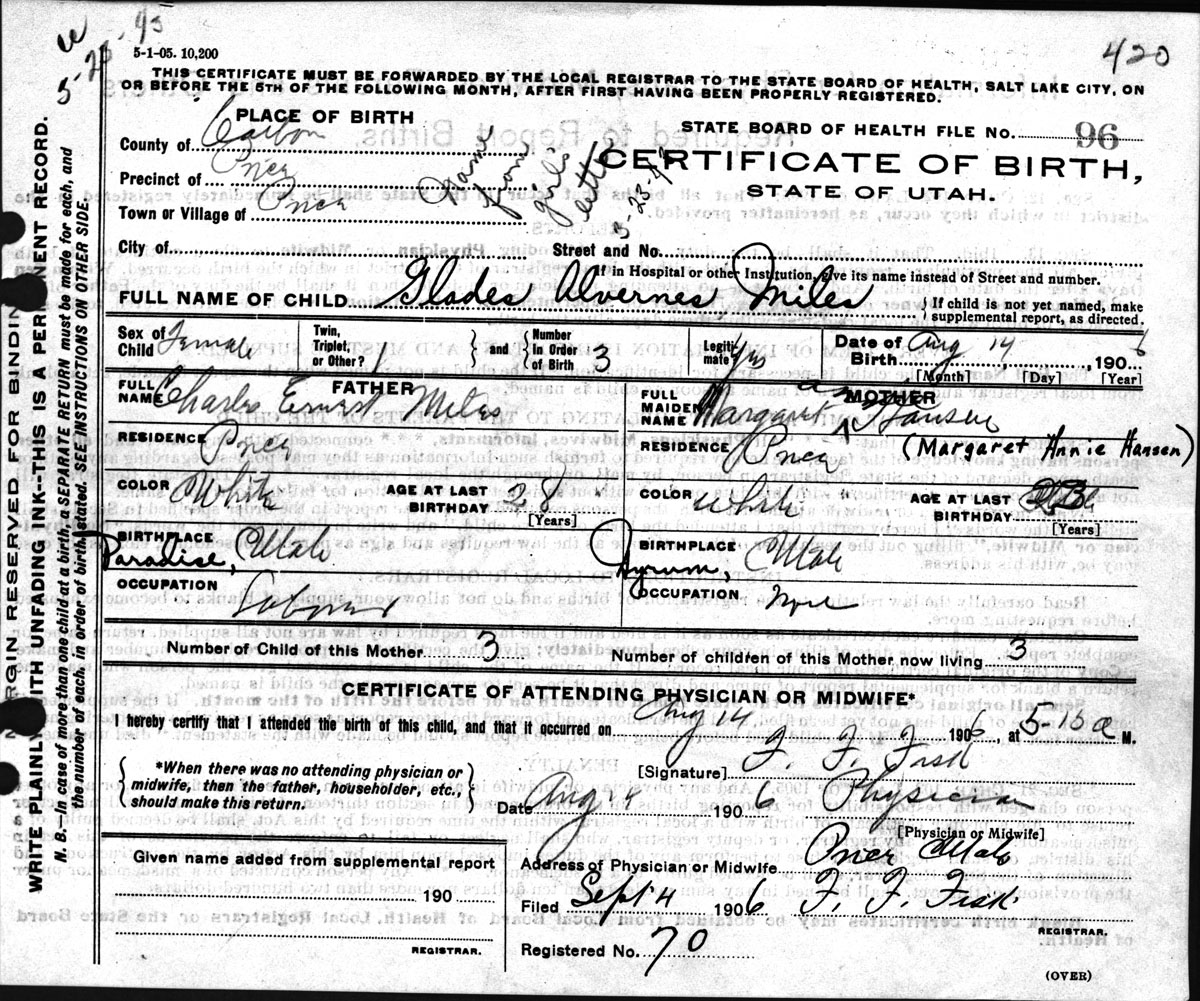 5-26-43
5-1-05. 10,200
420
THIS CERTIFICATE MUST BE FORWARDED BY THE LOCAL REGISTRAR TO THE STATE BOARD OF HEALTH, SALT LAKE CITY, ON
OR BEFORE THE 5TH OF THE FOLLOWING MONTH, AFTER FIRST HAVING BEEN PROPERLY REGISTERED.
PLACE OF BIRTH
County of Carbon
Precinct of Price
Town or Village of Price
City of
Name
from
girl's
letter
STATE BOARD OF HEALTH FILE NO. 96
CERTIFICATE OF BIRTH,
STATE OF UTAH.
Street and No.
If in Hospital or other Institution, give its name instead of Street and number.
FULL NAME OF CHILD Glades Alvernes Miles
{ If child is not yet named, make
supplemental report, as directed.
Sex of Child Female
Twin, Triplet, or Other? 1 } and { Number in Order of Birth 3
Legitimate? Yes
Date of Birth Aug 14, 1906
[Month] [Day] [Year]
FATHER
FULL NAME Charles Ernest Miles
RESIDENCE Price
COLOR White
AGE AT LAST BIRTHDAY 28
[Years]
BIRTHPLACE Paradise, Utah
OCCUPATION Laborer
MOTHER
FULL MAIDEN NAME Margaret Hansen
RESIDENCE Price
(Margaret Annie Hansen)
COLOR White
AGE AT LAST BIRTHDAY
[Years]
BIRTHPLACE Hyrum, Utah
OCCUPATION
Number of Child of this Mother 3
Number of children of this Mother now living 3
CERTIFICATE OF ATTENDING PHYSICIAN OR MIDWIFE*
I hereby certify that I attended the birth of this child, and that it occurred on Aug 14 1906, at 5-15 a M.
{ *When there was no attending physician or
midwife, then the father, householder, etc.,
should make this return. }
[Signature] F. F. Fisk
Date Aug 1906 Physician
[Physician or Midwife]
Given name added from supplemental report
190
REGISTRAR.
Address of Physician or Midwife Price Utah
Filed Sept 4 1906 F. F. Fisk
REGISTRAR.
Registered No. 70
(OVER)
MARGIN RESERVED FOR BINDING
WRITE PLAINLY WITH UNFADING INK--THIS IS A PERMANENT RECORD.
N. B. In case of more than one child at a birth a SEPARATE RETURN must be made for each, and
the number of each, in order of birth, stated. SEE INSTRUCTIONS ON OTHER SIDE.